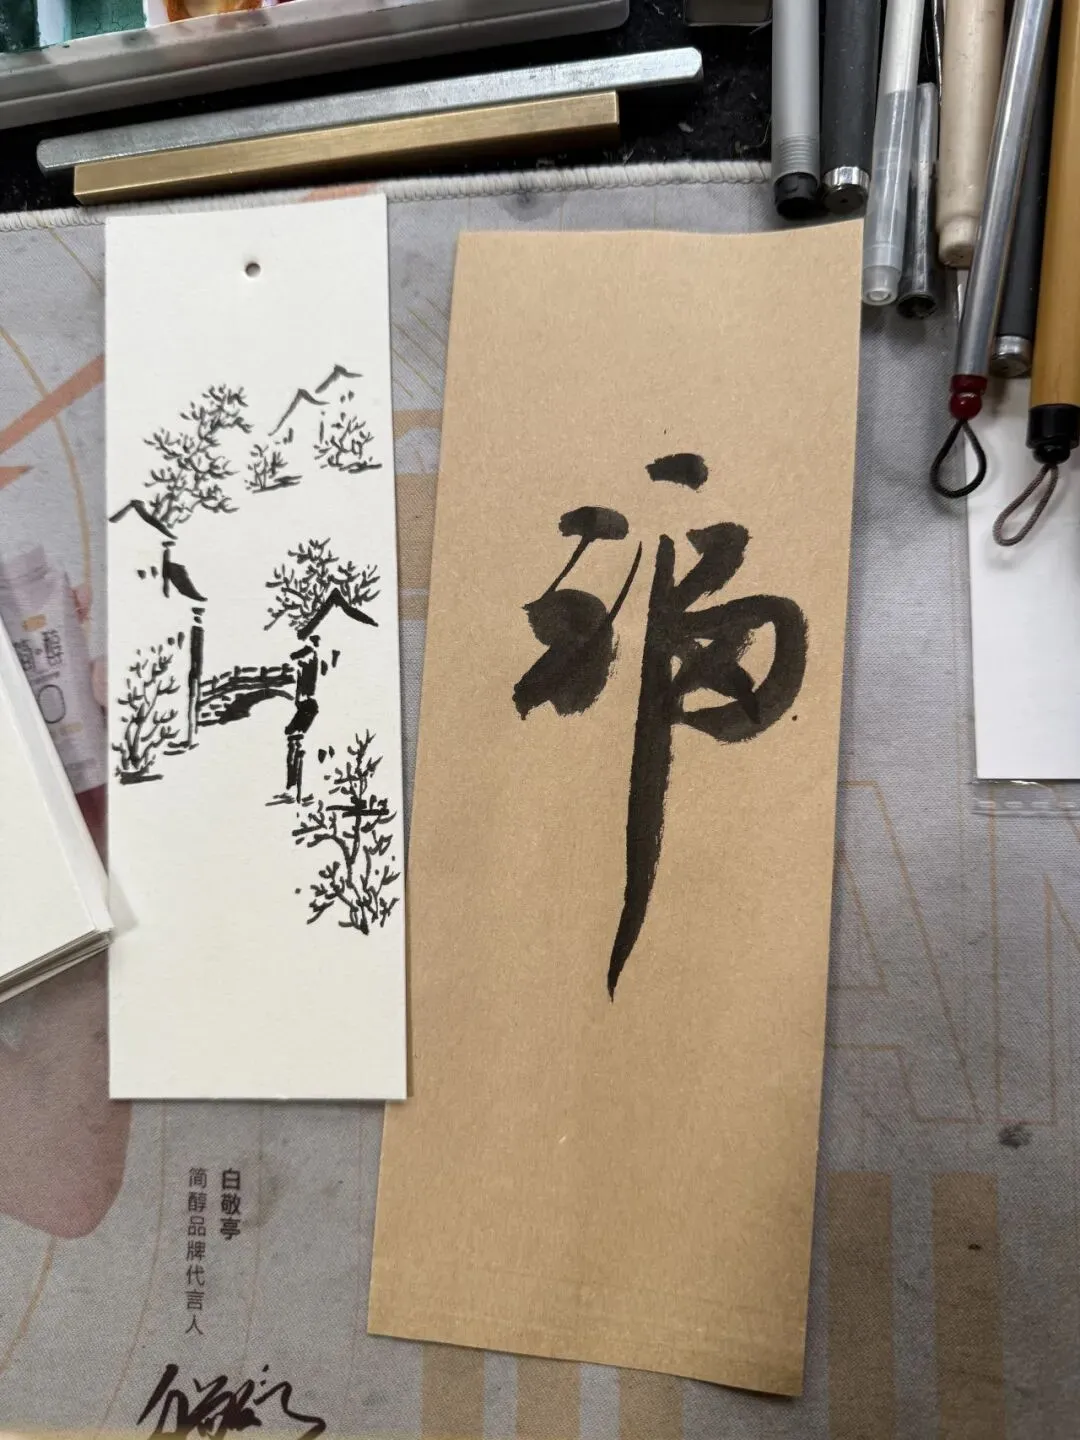 福
白敬亭
简醇品牌代言人
简·醇